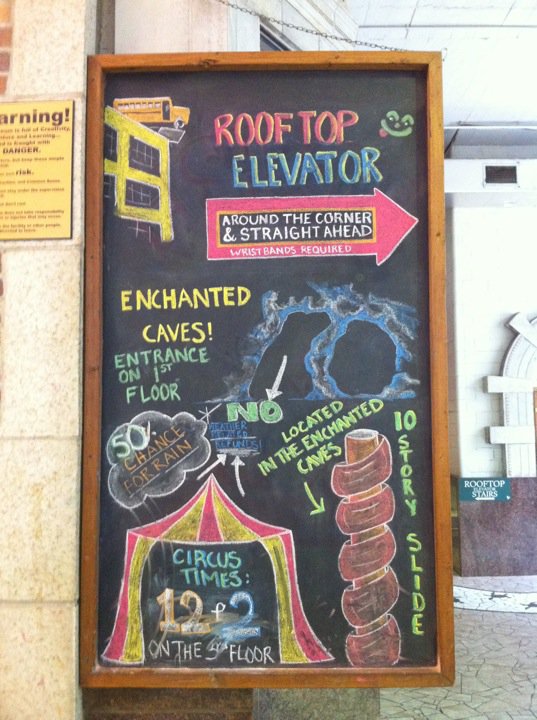 arning!
DANGER.
risk.
ROOFTOP
ELEVATOR
AROUND THE CORNER
& STRAIGHT AHEAD
WRISTBANDS REQUIRED
ENCHANTED
CAVES!
ENTRANCE
ON 1ST
FLOOR
NO
WEATHER
RELATED
REFUNDS!
50%
CHANCE
FOR RAIN
LOCATED
IN THE ENCHANTED
CAVES
10 STORY SLIDE
CIRCUS
TIMES:
12 & 2
ON THE FLOOR
ROOFTOP
ELEVATOR
STAIRS